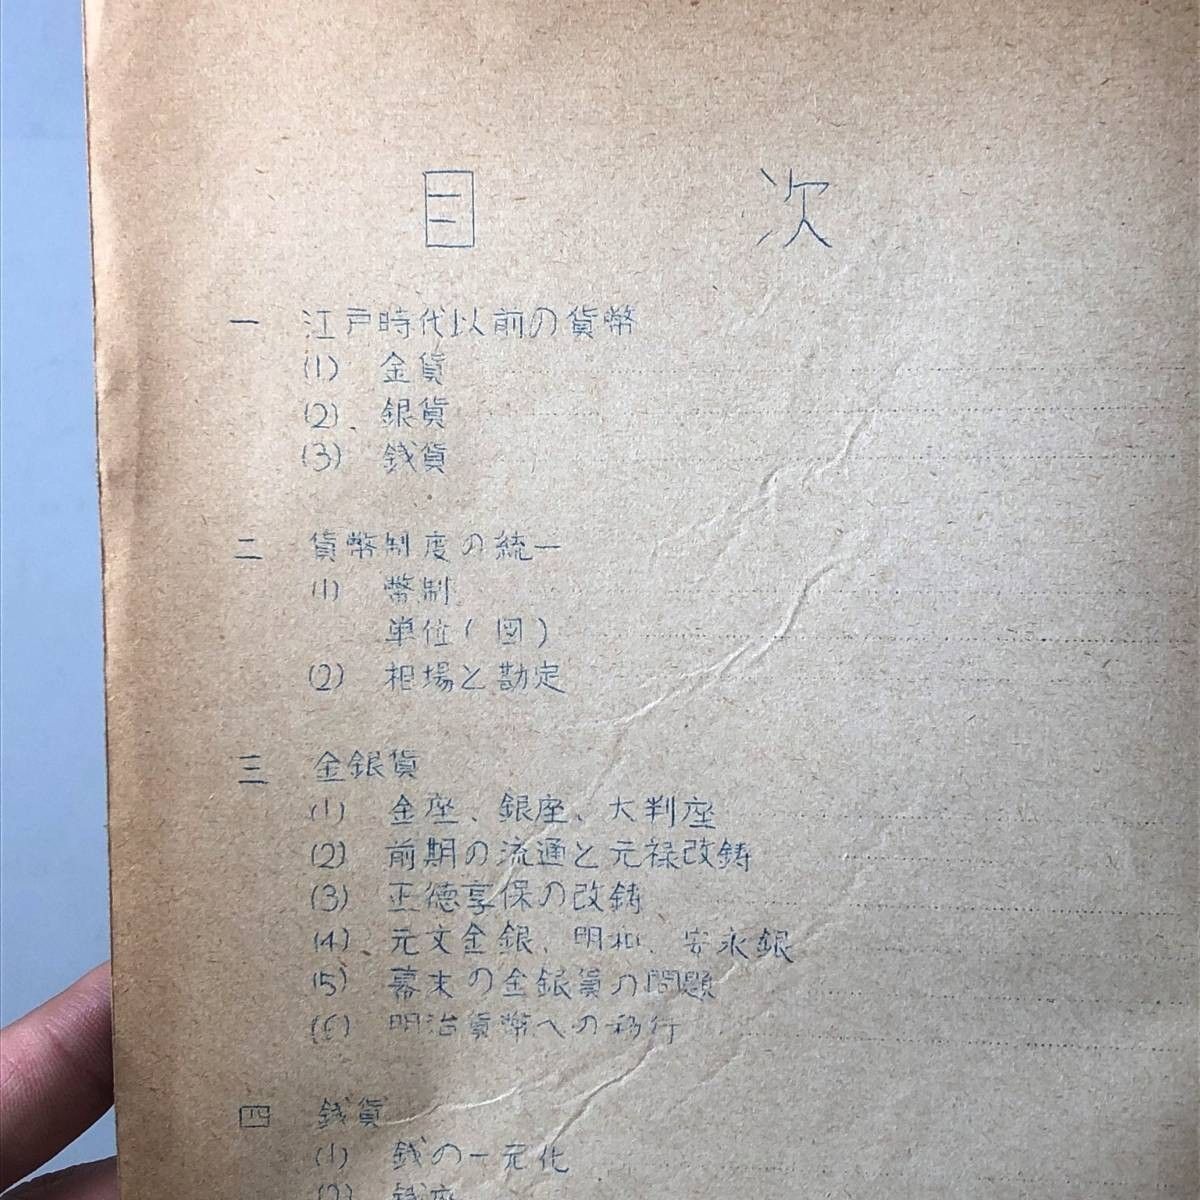 目 次
一 江戸時代以前の貨幣
(1) 金貨
(2) 銀貨
(3) 銭貨
二 貨幣制度の統一
(1) 幣制
単位(図)
(2) 相場と勘定
三 金銀貨
(1) 金座、銀座、大判座
(2) 前期の流通と元禄改鋳
(3) 正徳享保の改鋳
(4) 元文金銀、明和、安永銀
(5) 幕末の金銀貨の問題
(6) 明治貨幣への移行
四 銭貨
(1) 銭の一元化
(2) 銭座